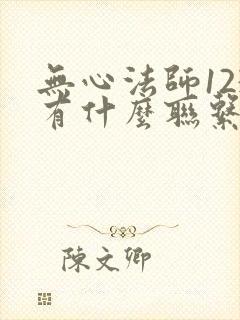 無心法師12
有什麼聯繫
陳文卿